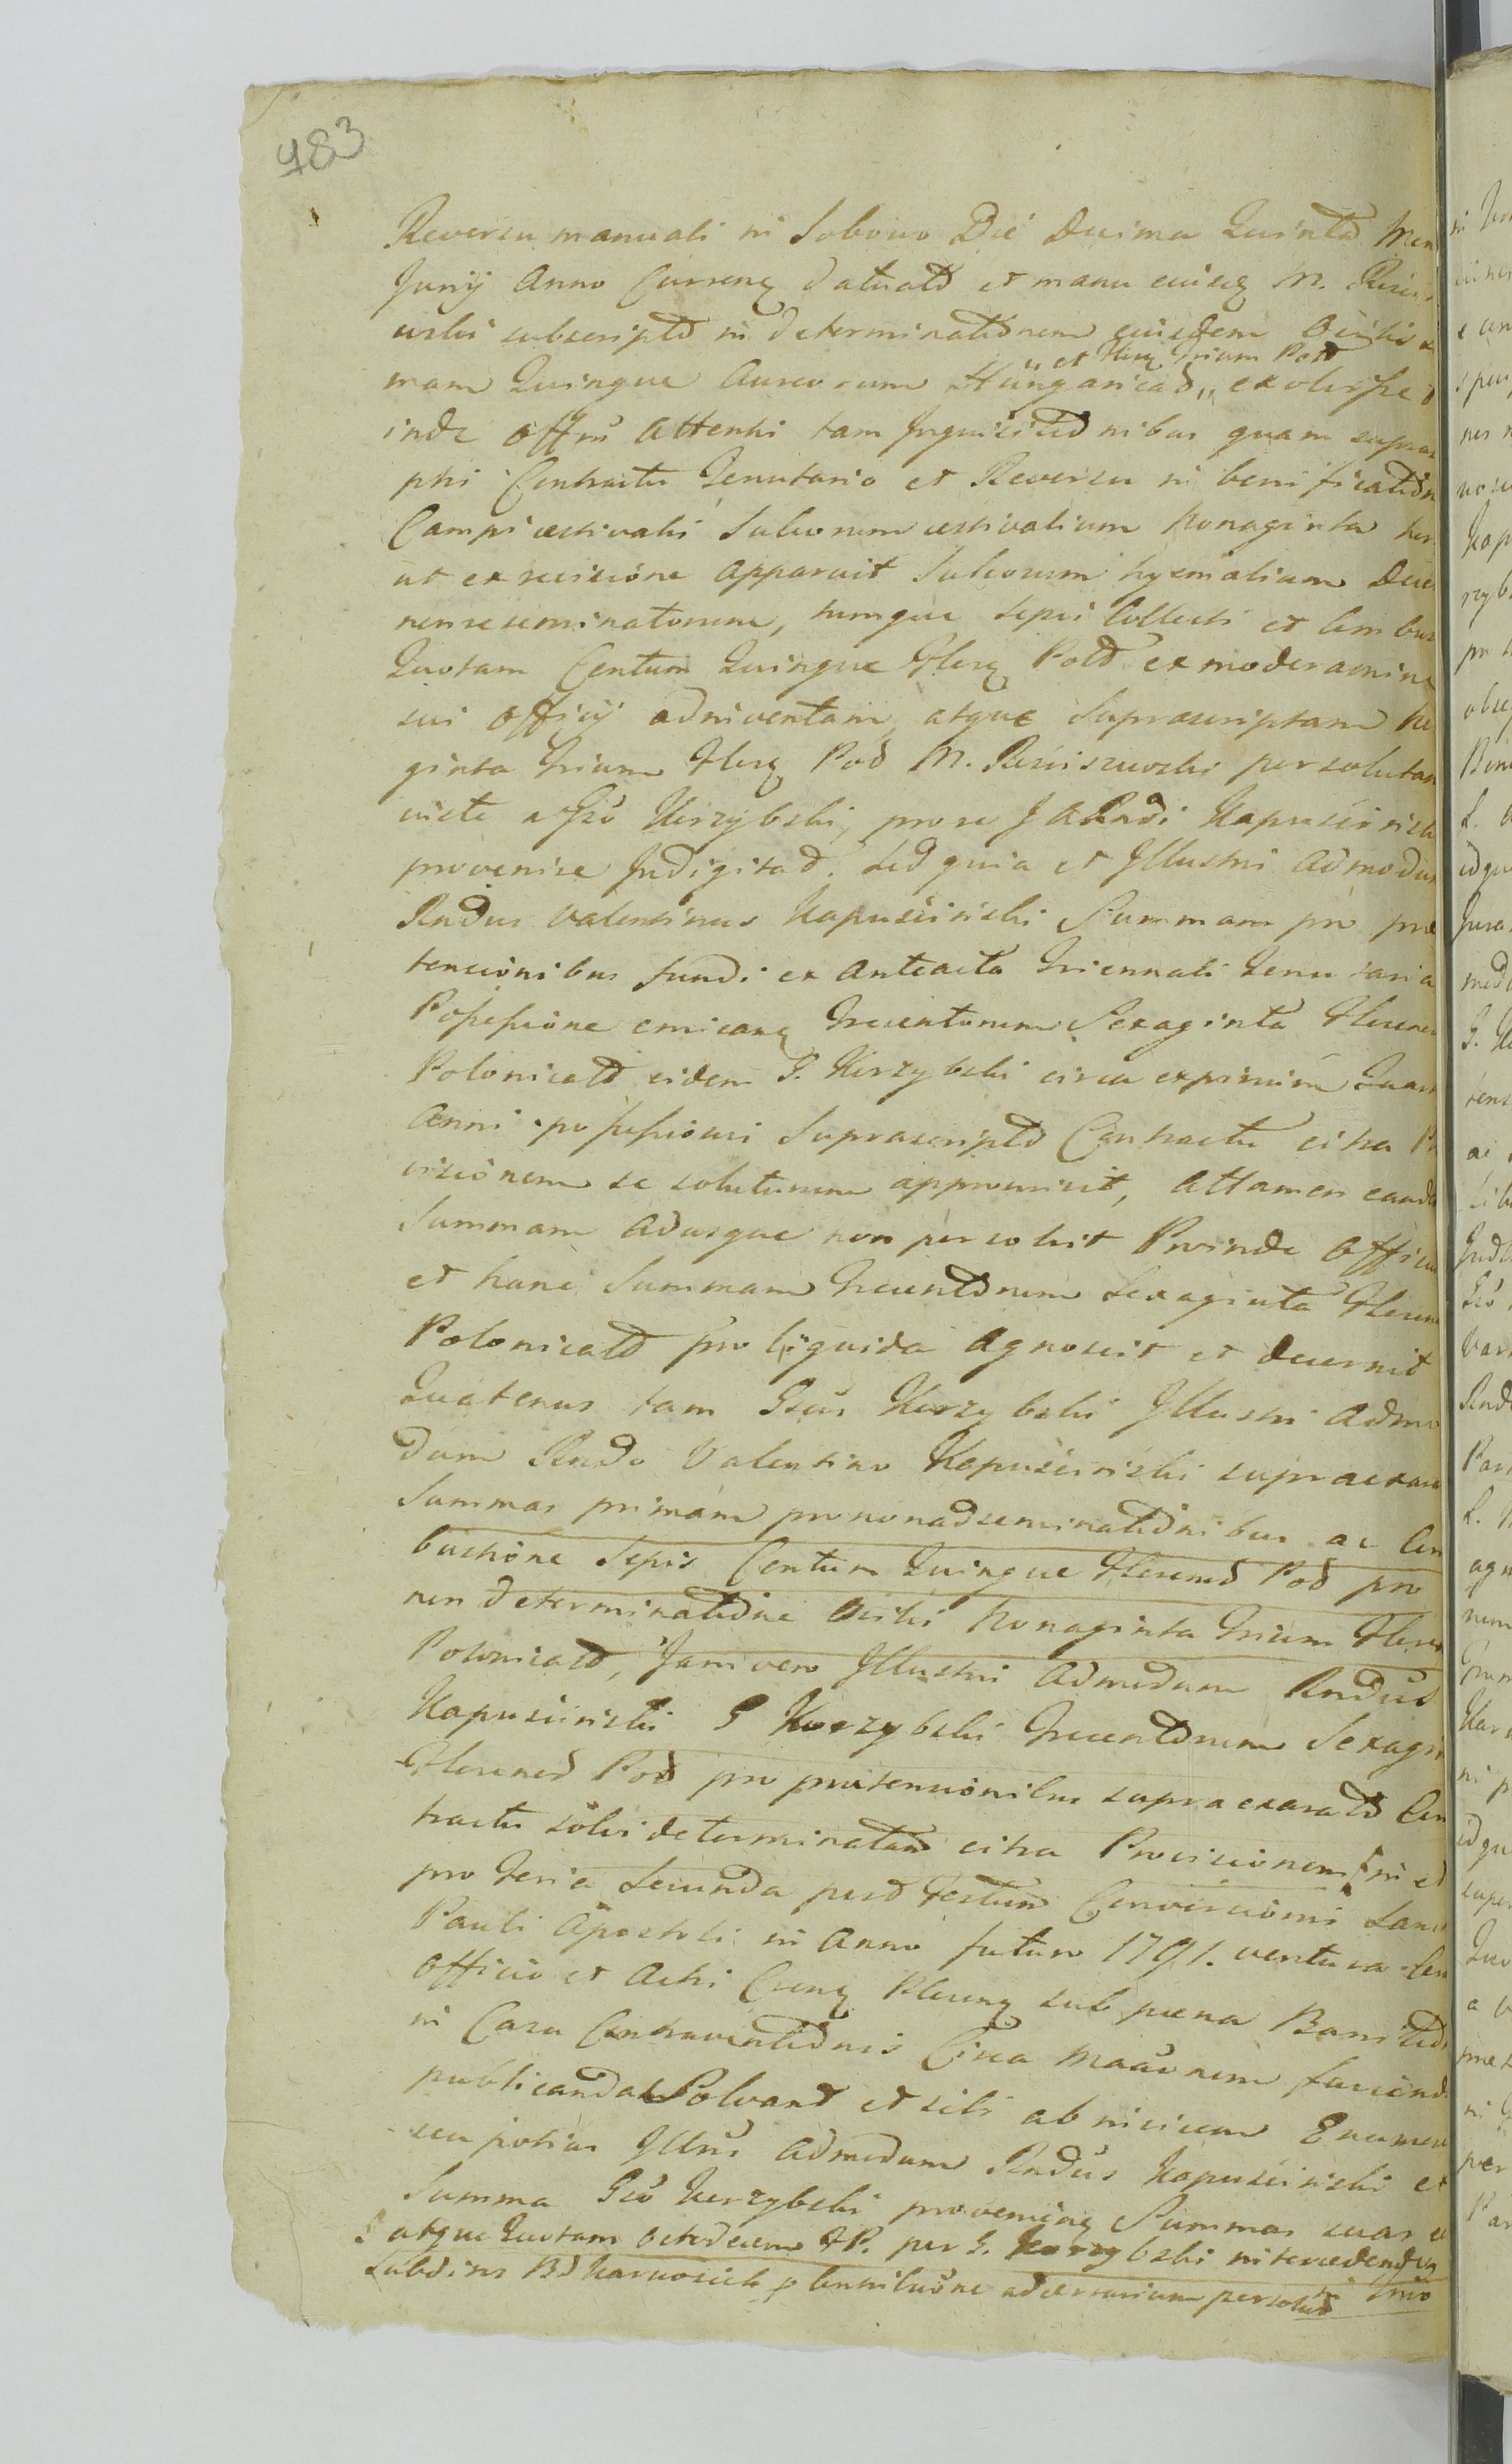 483
Reversu manuali in Sobowo Die Decima Quinta Men
Junÿ Anno Curren datuat et manu euisq M.
wski subscripto in determinationem eiusdem
et Flrez Trium Pold
mam Quinque Aureorum Hungaricad „ exolvisse
inde Offm attentis tam Inquisitionibus quam supra
pti Contractu Tenutario et Reversu in benificatio
Campi aestivalis Sulcorum aestivalium Nonaginta
ut ex revisione apparuit Sulcorum hyemalium
non seminatorum, tumque sepis Collecti et Combus
Quotam Centum Quinque Flrez Pold ex moderamine
sui Officij adinventam, atque Suprascriptam
ginta Trium Flrez Pod M. Ruściszewski persolutam
Korzybski, pro se Kapuścinski
provenire Indigitad. Sed quia et Illustri Admodum
Rndus Valentinus Kapuścinski Summam pro præ
tensionibus fundi ex Anteacta Triennali Tenutaria
Possessione emican Trecentorum Sexaginta Floreno
Polonicald eidem G. Korzybski circa expirium
Anni possessioni Suprascripto Contractu citra
visionem se soluturum appromisit, Attamen eand
Summam Adusque non persolvit Proinde Officiu
et hanc Summam Trecentorum Sexaginta Floren
Polonicald pro liquida Agnoscit et decernit
Quatenus tam Gsus Korzybski Illustri Admo
dum Rndo Valentino Kapuścinski supraexara
Summas primam pro nonadseminationibus ac Com
bustione Sepis Centum Quinque Florend Pod pro
non determinatione Nonaginta Trium Floren
Polonicald, Jam vero Illustri Admodum Rndus
Kapuścinski G Korzybski Trecentorum Sexagin
Florened Pod pro prætensionibus supraexarato Con
tractu solvi determinatam citra Provisionem in et
pro Feria Secunda post Festum Conversionis Sanc
Pauli Apostoli in Anno futuro 1791. ventura
Officio et Actis sub pæna Banitio
in Casu Contraventionis Circa faciend
publicandæ Solvant et sibi ab invicem Enumer
seu potius Illris Admodum Rndus Kapuścinski et
Summa Gso Korzybski provenien Summas suas
atque Quotam Octodecem FP. per G. Korzybski intercedendo
Subdis persolut